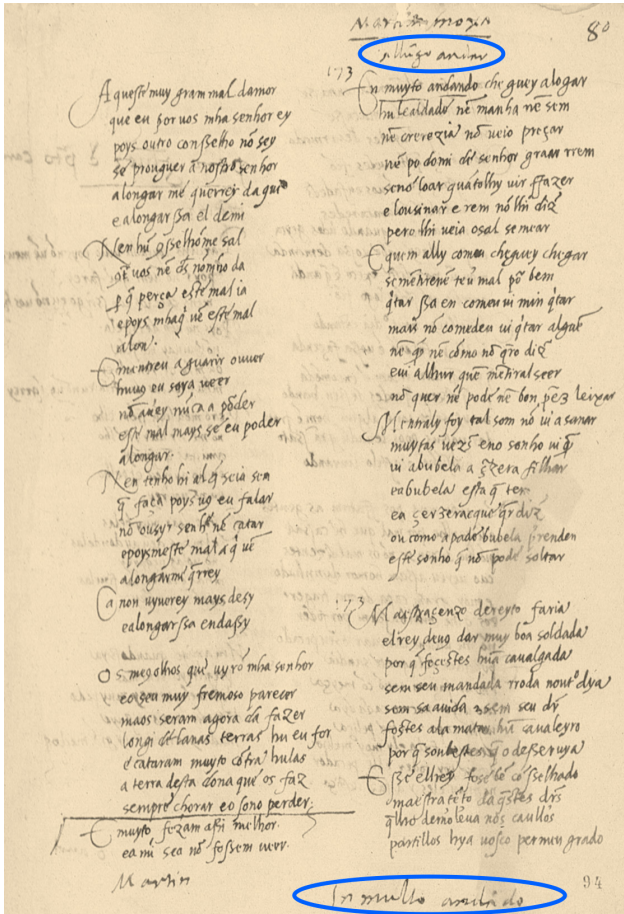 Martin moxa
80
A queste muy gram mal damor
que eu por vos mha senhor ey
poys outro consselho nō sey
se prouguer a nostro senhor
alongar me querrey daqui
e alongarssa el demi
Nen hū
que vos nē ds nōmho da
p̄ q̄ perça este mal ia
epoys mhaq̄ uē este mal
alon.
E mentreu aguarir ouuer
hu uꝯ eu soya ueer
nō auey nūca a poder
este mal mays se eu poder
alongar.
Nen tenho hi al q̄ seia sen
q̄ faça poys uꝯ eu falar
nō ousyr senh̄ nē catar
epoysmeste mal a q̄ uē
alongarmi q̄rrey
Ca non uyuerey mays desy
ealongarssa endassy
Os meꝯ olhos que uyrō mha senhor
eo seu muy fremoso parecer
maos seram agora da fazer
longi dela nas terras hu eu for
e cataram muyto cōtra hulas
a terra desta dona que os faz
sempre chorar eo sono perder.
E muyto fezam afā melhor
ea mī seo nō fossem ueer.
Martin
173
En muyto andando cheguey alogar
hu lealdade nē manha nē sem
nē crerezia nō veio preçar
nē podomē de senhor gaar rrem
senō loar quātolhy uir ffazer
e lousinar e rem nō lhi diz̄
pero lhi veia o sal semear
E quem ally comeu cheguey chegar
sē mentirene teu mal pō bem
q̄tar ssa en comeu ui min q̄tar
mais nō comedeu ui q̄tar alguē
nē q̄ nē cōmo nō q̄ro diz̄
e ui alhur quē mētiral seer
nō quer nē pode nē bon prez leixar
Mentraly foy tal som nō ui a sonar
muytas uezs eno sonho ui q̄
ui abubela a q̄zera filhar
eabubela esta q̄ ter
ea çerzeta
ou como apado bubela prenden
este sonho q̄ nō pode soltar
173
Maestraçenzo dereyto faria
elrey deuꝯ dar muy bōa soldada
por q̄ foçestes hūa caualgada
sem seu mandada rroda nout o dya
sem sa auida ꝫ sem seu dr̄
fostes ala matar hū caualeyro
por q̄ soubestes q̄ o deseruya
E sse elrey fosse bē cōsselhado
maestra tēto dā q̄stes drs
q̄ lho demo leua nos caullos
partillos hya uosco per meu grado
94
In multo andādo